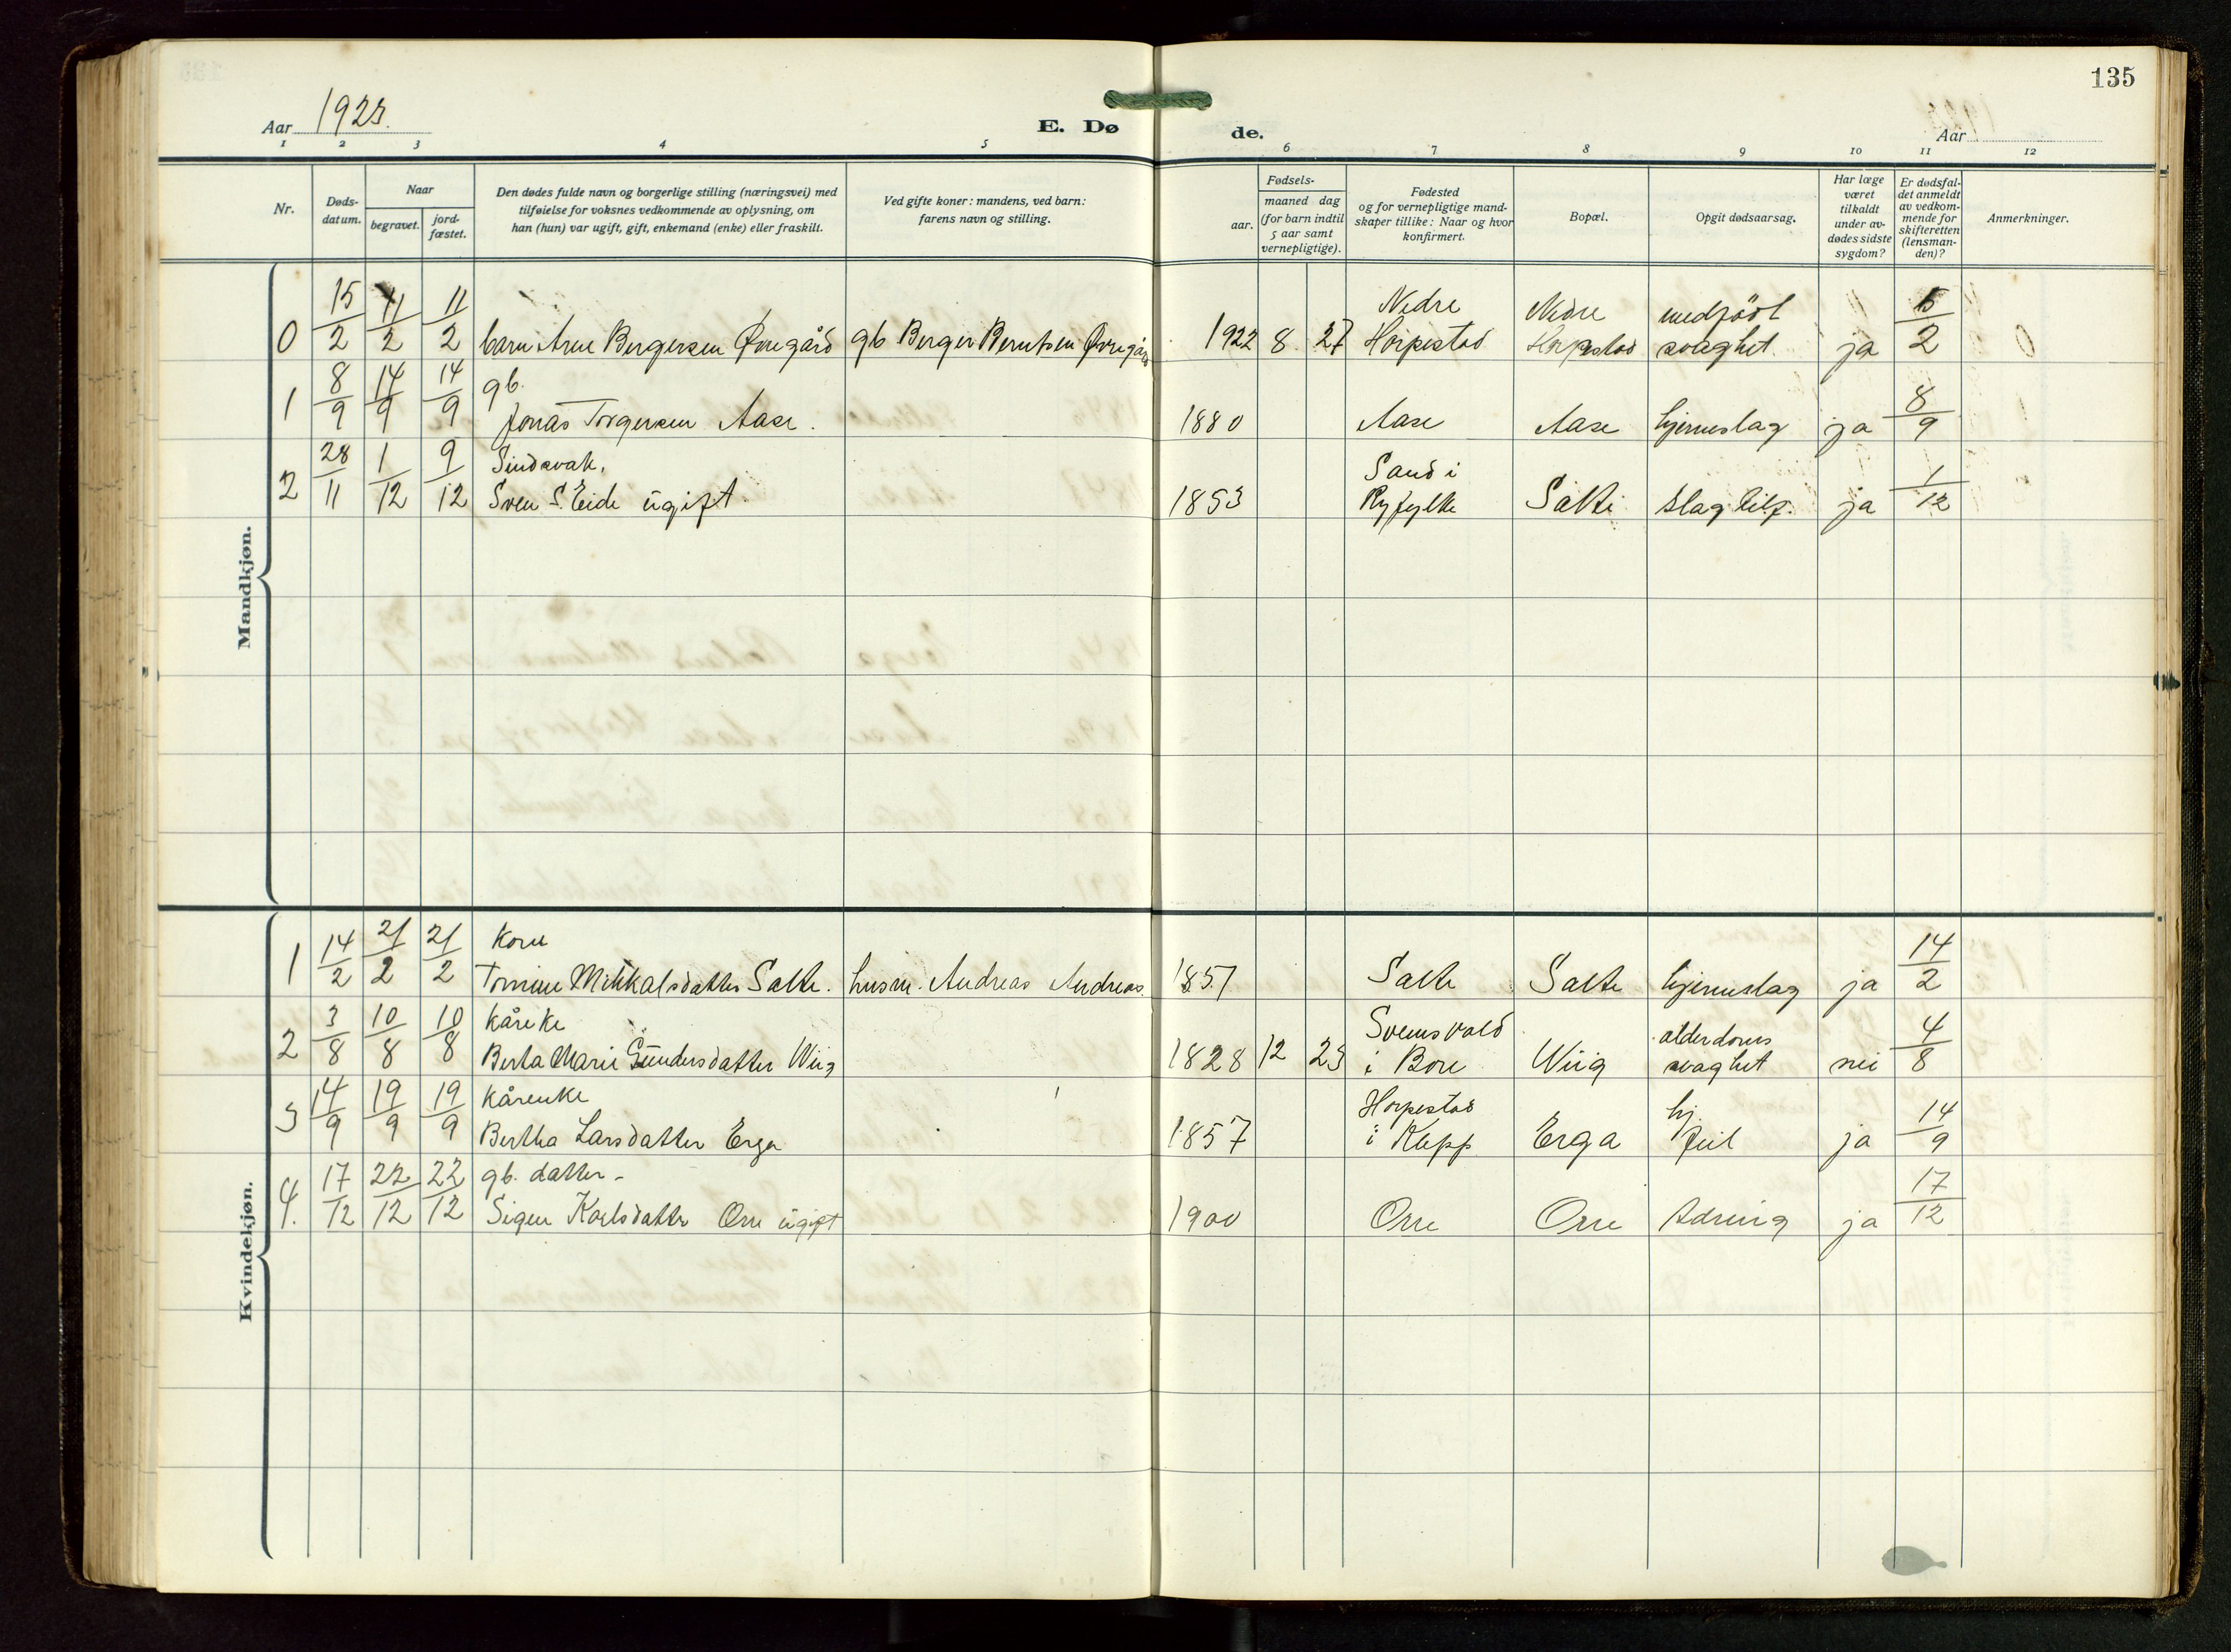 135
Aar 1923.
E. Dø de.
Aar
1 2 3 4 5 6 7 8 9 10 11 12
Nr.
Døds-
datum.
Naar
begravet.
jord-
fæstet.
Den dødes fulde navn og borgerlige stilling (næringsvei) med
tilføielse for voksnes vedkommende av oplysning, om
han (hun) var ugift, gift, enkemand (enke) eller fraskilt.
Ved gifte koner: mandens, ved barn:
farens navn og stilling.
Fødsels-
aar.
maaned dag
(for barn indtil
5 aar samt
vernepligtige).
Fødested
og for vernepligtige mand-
skaper tillike: Naar og hvor
konfirmert.
Bopæl.
Opgit dødsaarsag.
Har læge
været
tilkaldt
under av-
dødes sidste
sygdom?
Er dødsfal-
det anmeldt
av vedkom-
mende for
skifteretten
(lensman-
den)?
Anmerkninger.
Mandkjøn.
0 15/2 11/2 11/2 barn Arne Bergersen Øvregård gb Berger Berntsen Øvregård 1922 8 27 Nedre Horpestad Nedre Horpestad medfödt svaghet ja 15/2
1 8/9 14/9 14/9 gb.
Jonas Torgersen Aase. 1880 Aase Aase hjerneslag ja 8/9
2 28/11 1/12 9/12 Sindsvak,
Sven S. Eide ugift. 1853 Sand i Ryfylke Salte slagtilf. ja 1/12
Kvindekjøn.
1 14/2 21/2 21/2 Kone
Tomine Mikkalsdatter Salte. husm. Andreas Andreas. 1857 Salte Salte hjerneslag ja 14/2
2 3/8 10/8 10/8 kåreke
Berta Marie Gundersdatter Wiig 1828 12 23 i Bore Wiig alderdoms svaghet nei 4/8
3 14/9 19/9 19/9 kårenke
Bertha Larsdatter Erga 1857 Horpestad i Klepp Erga hj. feil ja 14/9
4. 17/12 22/12 22/12 gb. datter -
Karlsdatter Orre ugift 1900 Orre Orre ja 17/12